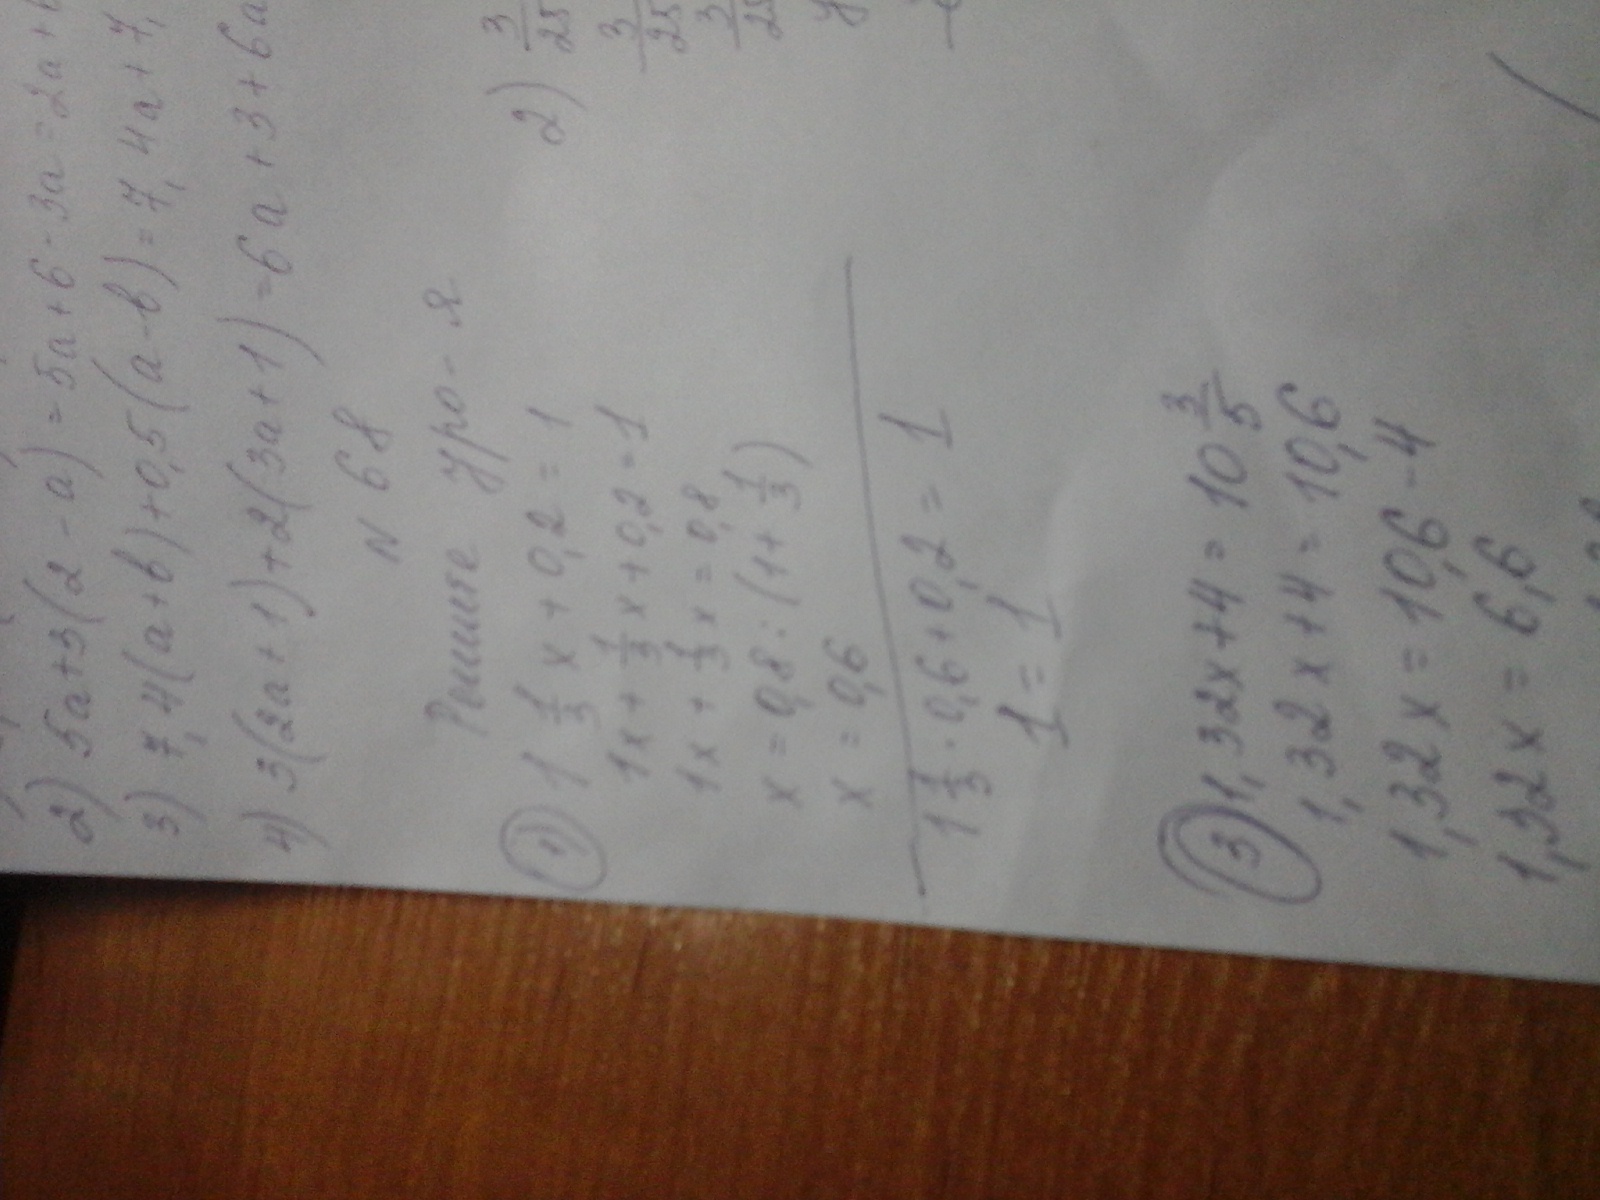 2) 5a+3(2-a)=5a+6-3a=2a+6
3) 7,4(a+b)+0,5(a-b)=7,4a+7,
4) 3(2a+1)+2(3a+1)=6a+3+6a
N 68
Решите ура-я
1) 1 1/3 x + 0,2 = 1
1x + 1/3 x + 0,2 = 1
1x + 1/3 x = 0,8
x = 0,8 : (1 + 1/3)
x = 0,6
1 1/3 · 0,6 + 0,2 = 1
1 = 1
2) 3/25
3/25
3/25
y
3) 1,32x + 4 = 10 3/5
1,32x + 4 = 10,6
1,32x = 10,6 - 4
1,32x = 6,6